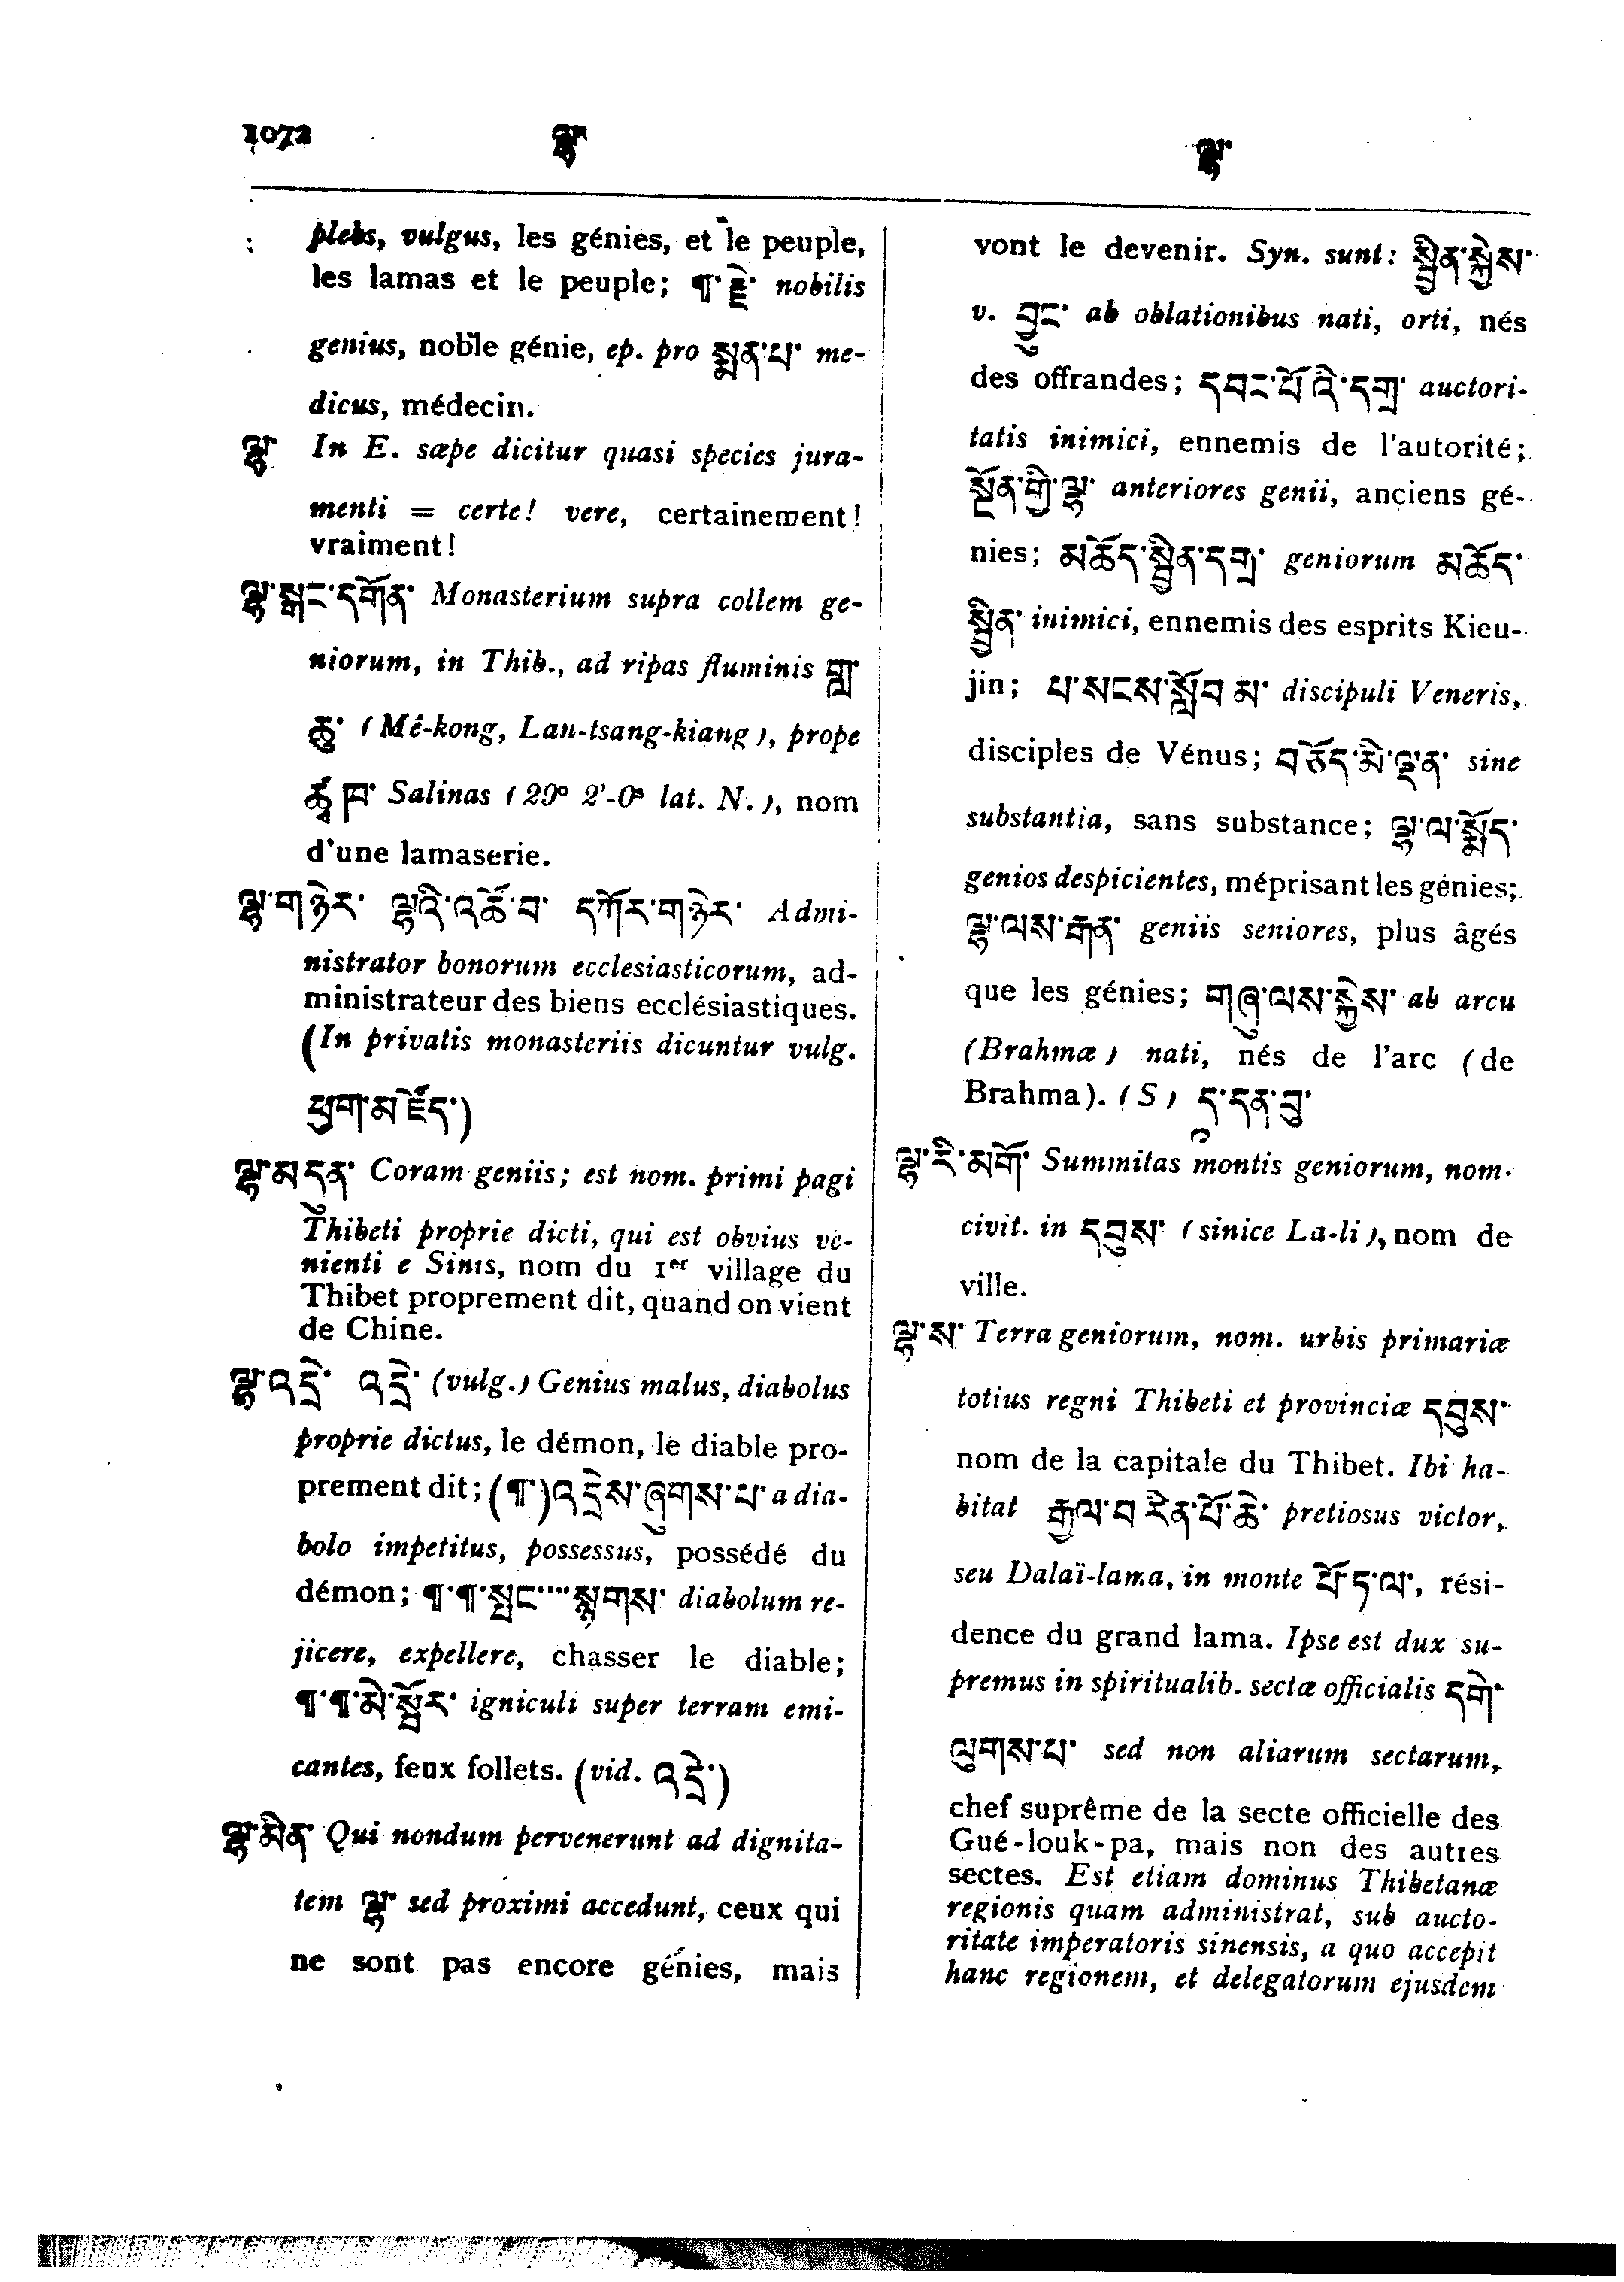 1072 ལྷ་ ལྷ་
plebs, vulgus, les génies, et le peuple,
les lamas et le peuple; ¶་རྗེ་ nobilis
genius, noble génie, ep. pro སྨན་པ་ me-
dicus, médecin.
ལྷ་ In E. sæpe dicitur quasi species jura-
menti = certe! vere, certainement!
vraiment!
ལྷ་སྒང་དགོན་ Monasterium supra collem ge-
niorum, in Thib., ad ripas fluminis ཟླ་
ཆུ་ (Mê-kong, Lan-tsang-kiang), prope
ཚྭ་ཁ་ Salinas (29° 2'-0" lat. N.), nom
d'une lamaserie.
ལྷ་གཉེར་ ལྷའི་འཚོ་བ་ དཀོར་གཉེར་ Admi-
nistrator bonorum ecclesiasticorum, ad-
ministrateur des biens ecclésiastiques.
(In privatis monasteriis dicuntur vulg.
ཕྱག་མཛོད་)
ལྷ་མདུན་ Coram geniis; est nom. primi pagi
Thibeti proprie dicti, qui est obvius ve-
nienti e Sinis, nom du 1er village du
Thibet proprement dit, quand on vient
de Chine.
ལྷ་འདྲེ་ འདྲེ་ (vulg.) Genius malus, diabolus
proprie dictus, le démon, le diable pro-
prement dit; (¶་)འདྲེས་ཞུགས་པ་ a dia-
bolo impetitus, possessus, possédé du
démon; ¶་¶་སྤྲང་····སྙགས་ diabolum re-
jicere, expellere, chasser le diable;
¶་¶་མེ་སྦོར་ igniculi super terram emi-
cantes, feux follets. (vid. འདྲེ་)
ལྷ་མིན་ Qui nondum pervenerunt ad dignita-
tem ལྷ་ sed proximi accedunt, ceux qui
ne sont pas encore génies, mais
vont le devenir. Syn. sunt: སྦྱིན་སྐྱེས་
v. བྱུང་ ab oblationibus nati, orti, nés
des offrandes; དབང་པོའི་དགྲ་ auctori-
tatis inimici, ennemis de l'autorité;
སྔོན་གྱི་ལྷ་ anteriores genii, anciens gé-
nies; མཆོད་སྦྱིན་དགྲ་ geniorum མཆོད་
སྦྱིན་ inimici, ennemis des esprits Kieu-
jin; པ་སངས་སློབ་མ་ discipuli Veneris,
disciples de Vénus; བཅོད་མི་ལྡན་ sine
substantia, sans substance; ལྷ་ལ་སྨོད་
genios despicientes, méprisant les génies;
ལྷ་ལས་རྒན་ geniis seniores, plus âgés
que les génies; གཞུ་ལས་སྐྱེས་ ab arcu
(Brahmæ) nati, nés de l'arc (de
Brahma). (S) དཱ་དན་བུ་
ལྷ་རི་མགོ་ Summitas montis geniorum, nom.
civit. in དབུས་ (sinice La-li), nom de
ville.
ལྷ་ས་ Terra geniorum, nom. urbis primariæ
totius regni Thibeti et provinciæ དབུས་
nom de la capitale du Thibet. Ibi ha-
bitat རྒྱལ་བ་རིན་པོ་ཆེ་ pretiosus victor,
seu Dalaï-lama, in monte པོ་ཏ་ལ་, rési-
dence du grand lama. Ipse est dux su-
premus in spiritualib. sectæ officialis དགེ་
ལུགས་པ་ sed non aliarum sectarum,
chef suprême de la secte officielle des
Gué-louk-pa, mais non des autres
sectes. Est etiam dominus Thibetanæ
regionis quam administrat, sub aucto-
ritate imperatoris sinensis, a quo accepit
hanc regionem, et delegatorum ejusdem